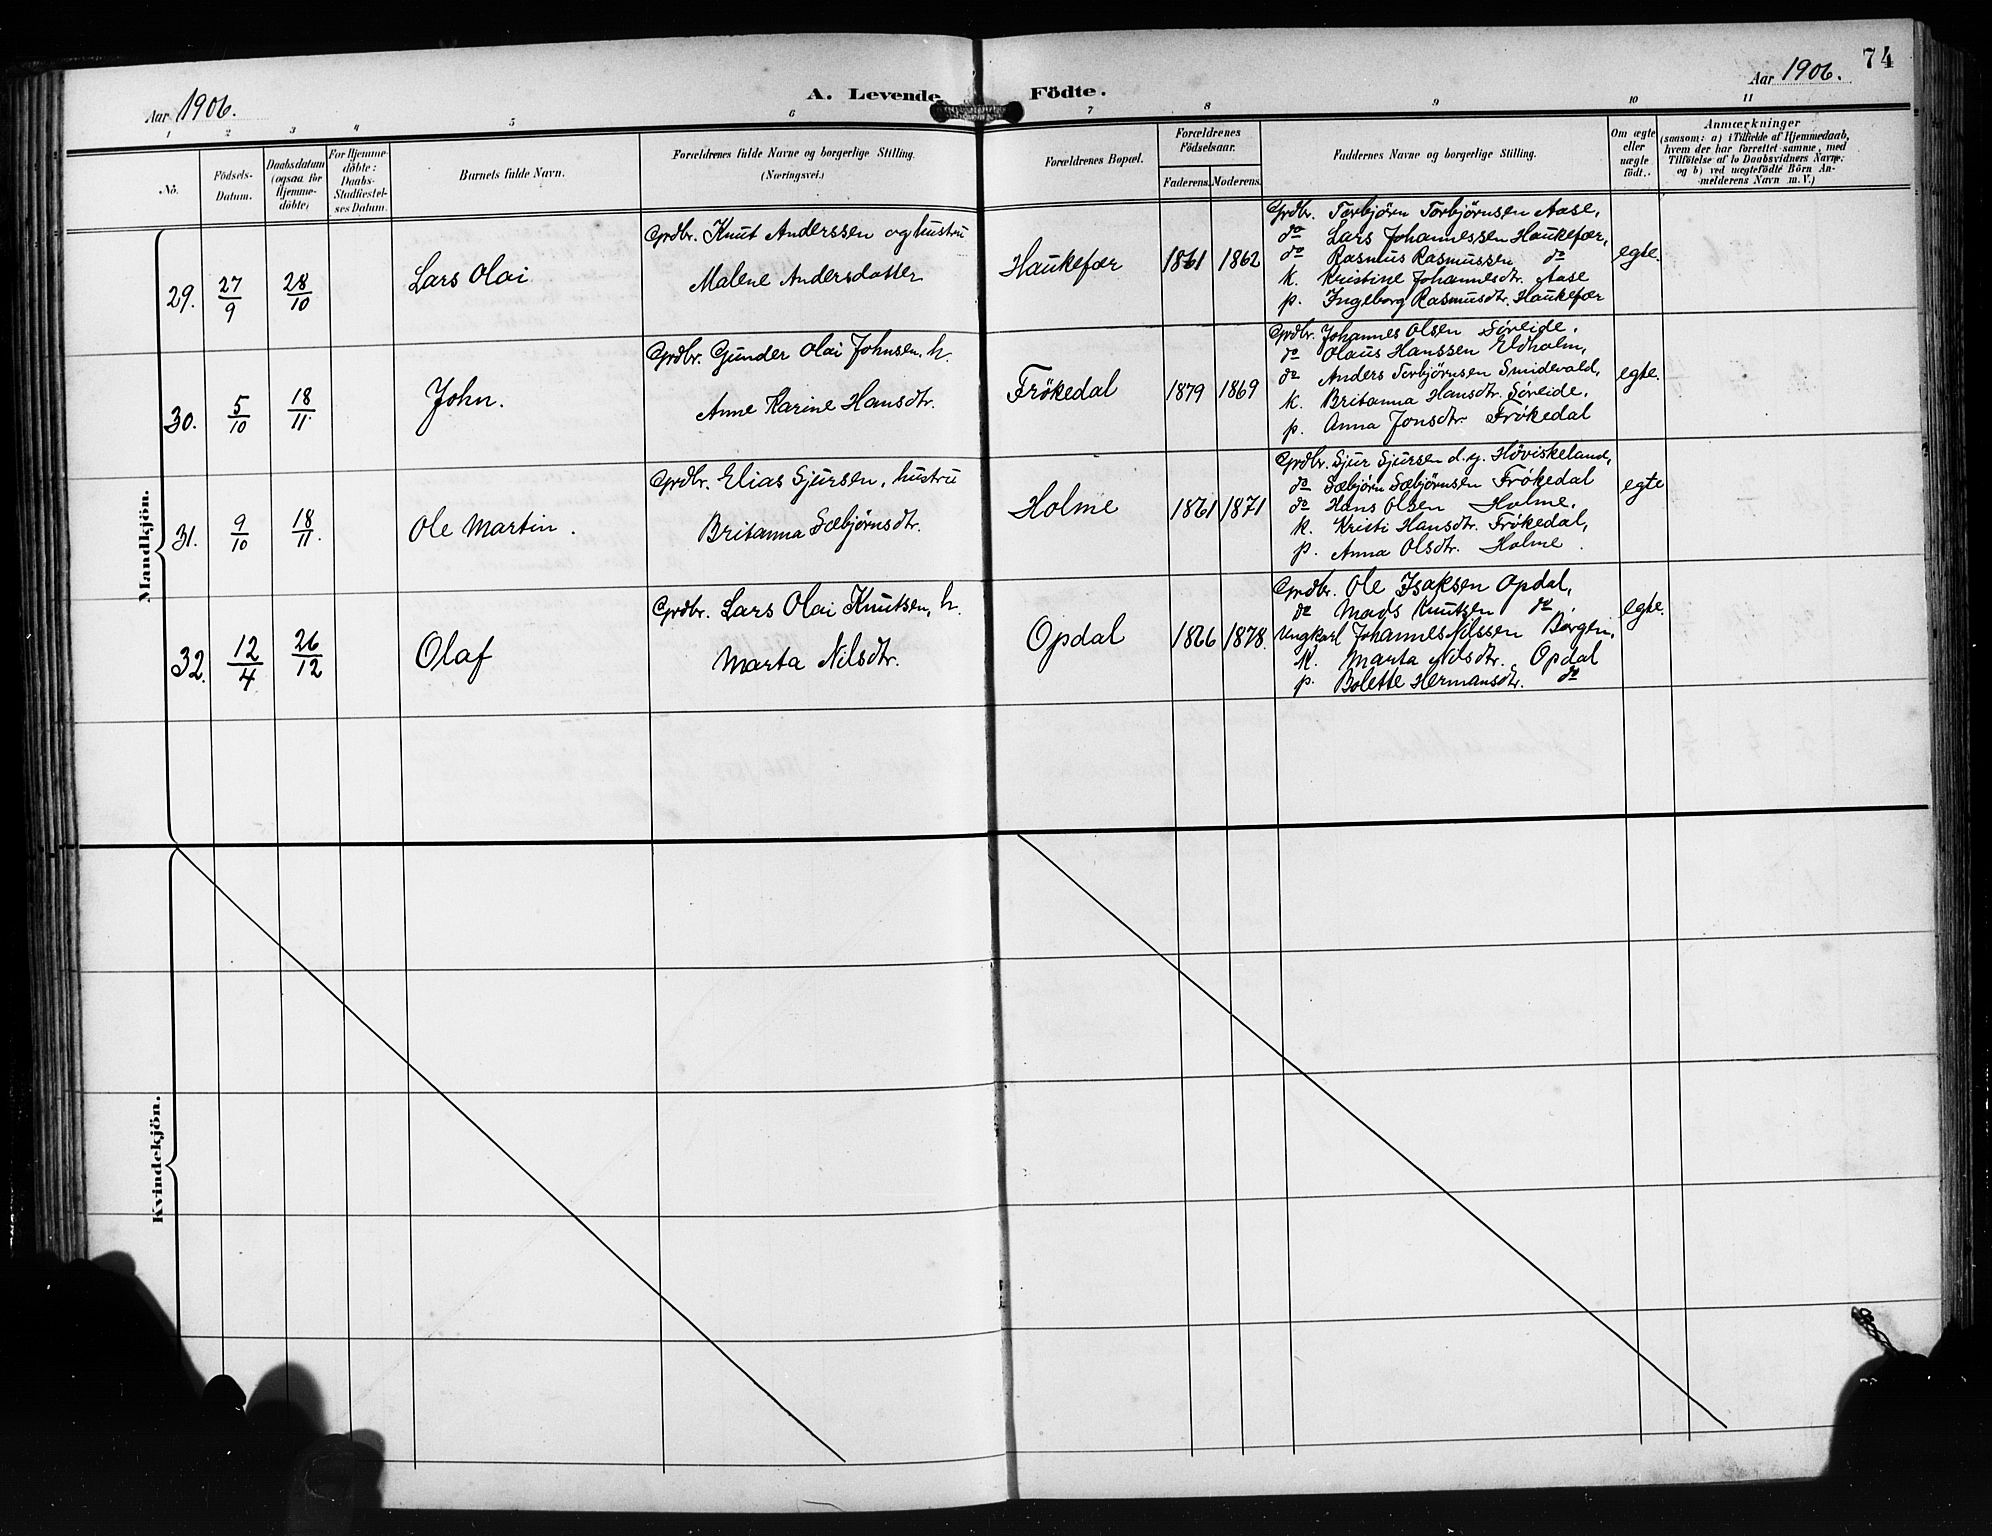 74
Aar 1906. A. Levende Födte. Aar 1906.
1 2 3 4 5 6 7 8 9 10 11
No.
Födsels-
Datum.
Daabsdatum
(ogsaa for
Hjemme-
döbte)
For Hjemme-
döbte:
Daabs-
Stadfæstel-
ses Datum.
Barnets fulde Navn.
Forældrenes fulde Navne og borgerlige Stilling.
(Næringsvei.)
Forældrenes Bopæl.
Forældrenes
Födselsaar.
Faderens. Moderens.
Faddernes Navne og borgerlige Stilling.
Om ægte
eller
uægte
födt.
Anmærkninger
(saasom: a) i Tilfælde af Hjemmedaab,
hvem der har forrettet samme, med
Tilföielse af to Daabsvidners Navne;
og b) ved uægtefödte Börn An-
melderens Navn m. V.)
Mandkjön.
29. 27/9 28/10 Lars Olai
Grdbr. Knut Anderssen og hustru
Malene Andersdatter
Haukefær 1861 1862
Grdbr. Torbjörn Torbjörnsen Aase,
do Lars Johannessen Haukefær,
do Rasmus Rasmussen do
K. Kristine Johannesdtr. Aase
p. Ingeborg Rasmusdtr. Haukefær
egte.
30. 5/10 18/11 John.
Grdbr. Gunder Olai Johnsen, h.
Anne Karine Hansdtr.
Frökedal 1879 1869
Grdbr. Johannes Olsen Söreide.
do Olaus Hanssen Eldholm,
do Anders Torbjörnsen Smidevold,
K. Britanna Hansdtr. Söreide,
p. Anna Jonsdtr. Frökedal
egte.
31. 9/10 18/11 Ole Martin.
Grdbr. Elias Sjursen, hustru
Britanna Sæbjörnsdtr.
Holme 1861 1871
Grdbr. Sjur Sjursen d.y. Höviskeland,
do Sæbjörn Sæbjörnsen Frökedal
do Hans Olsen Holme.
K. Kristi Hansdtr. Frökedal,
p. Anna Olsdtr. Holme.
egte
32. 12/4 26/12 Olaf
Grdbr. Lars Olai Knutsen, h.
Marta Nilsdtr.
Opdal 1866 1878.
Grdbr. Ole Isaksen Opdal,
do Mads Knutzen do,
Ungkarl Johannes Nilssen Borgen,
K. Marta Nilsdtr. Opdal
p. Bolette Hermansdtr. do
egte.
Kvindekjön.